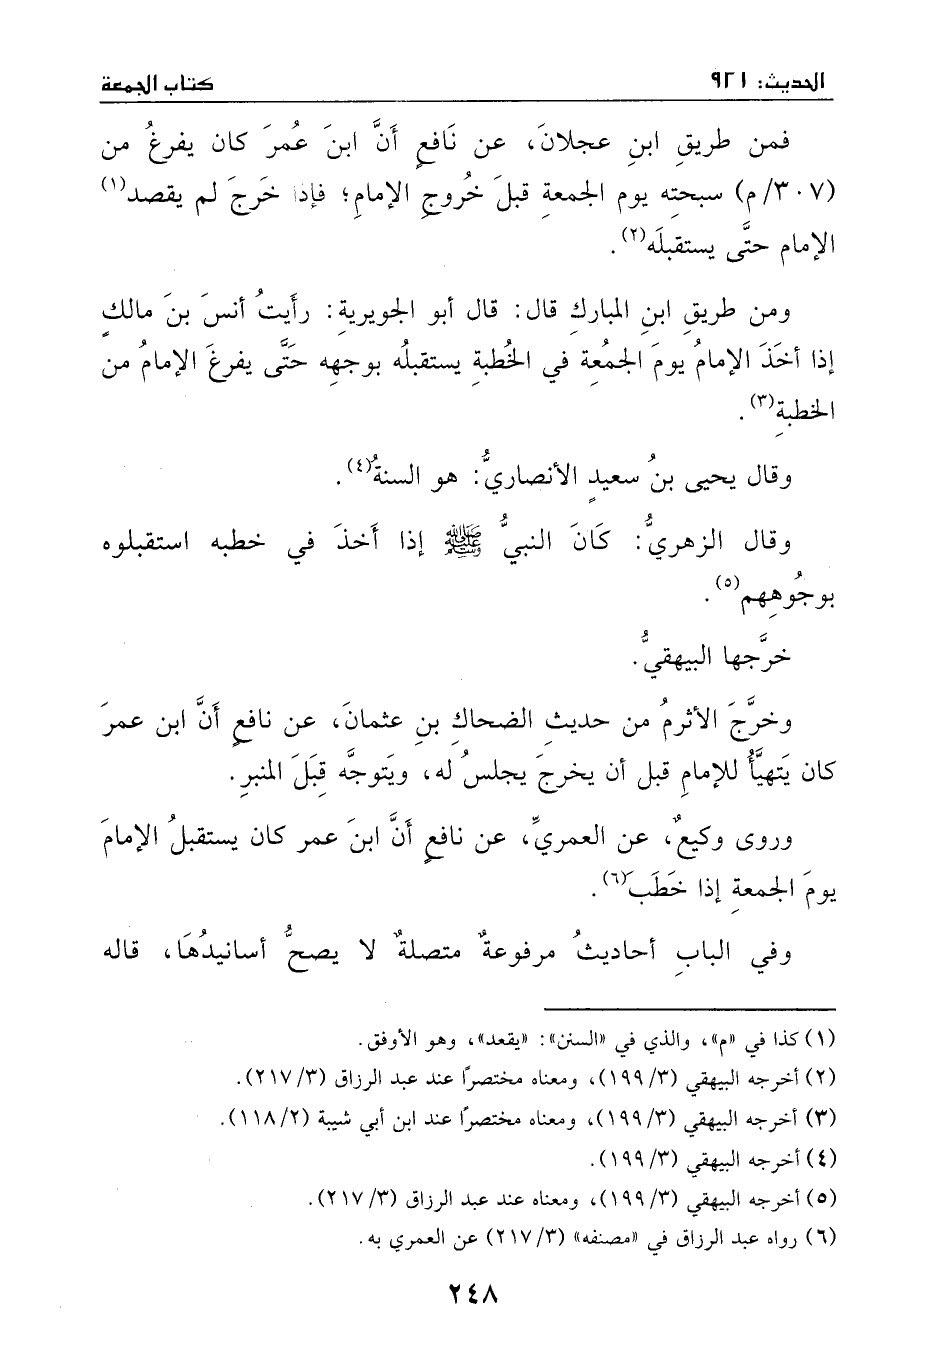 الحديث: ٩٢١
كتاب الجمعة
فمن طريقِ ابنِ عجلانَ، عن نَافعٍ أَنَّ ابنَ عُمرَ كان يفرغُ من
(٣٠٧/م) سبحتِه يوم الجمعةِ قبلَ خُروجِ الإمامِ؛ فإذا خَرجَ لم يقصد(١)
الإمام حتَّى يستقبلَه(٢).
ومن طريقِ ابنِ المباركِ قال: قال أبو الجويريةِ: رأَيتُ أنسَ بنَ مالكٍ
إذا أخَذَ الإمامُ يومَ الجمُعةِ في الخُطبةِ يستقبلُه بوجهِه حَتَّى يفرغَ الإمامُ من
الخطبةِ(٣).
وقال يحيى بنُ سعيدٍ الأنصاريُّ: هو السنةُ(٤).
وقال الزهريُّ: كَانَ النبيُّ ﷺ إذا أَخذَ في خطبه استقبلوه
بوجُوهِهم(٥).
خرَّجها البيهقيُّ.
وخرَّجَ الأثرمُ من حديثِ الضحاكِ بنِ عثمانَ، عن نافعٍ أَنَّ ابن عمرَ
كان يَتهيَّأُ للإمامِ قبل أن يخرجَ يجلسُ له، ويَتوجَّه قِبَلَ المنبرِ.
وروى وكيعٌ، عن العمريِّ، عن نافعٍ أنَّ ابنَ عمر كان يستقبلُ الإمامَ
يومَ الجمعةِ إذا خَطَبَ(٦).
وفي البابِ أحاديثُ مرفوعةٌ متصلةٌ لا يصحُّ أسانيدُهَا، قاله
(١) كذا في «م»، والذي في «السنن»: «يقعد»، وهو الأوفق.
(٢) أخرجه البيهقي (٣/ ١٩٩)، ومعناه مختصرًا عند عبد الرزاق (٣/ ٢١٧).
(٣) أخرجه البيهقي (٣/ ١٩٩)، ومعناه مختصرًا عند ابن أبي شيبة (٢/ ١١٨).
(٤) أخرجه البيهقي (٣/ ١٩٩).
(٥) أخرجه البيهقي (٣/ ١٩٩)، ومعناه عند عبد الرزاق (٣/ ٢١٧).
(٦) رواه عبد الرزاق في «مصنفه» (٣/ ٢١٧) عن العمري به.
٢٤٨